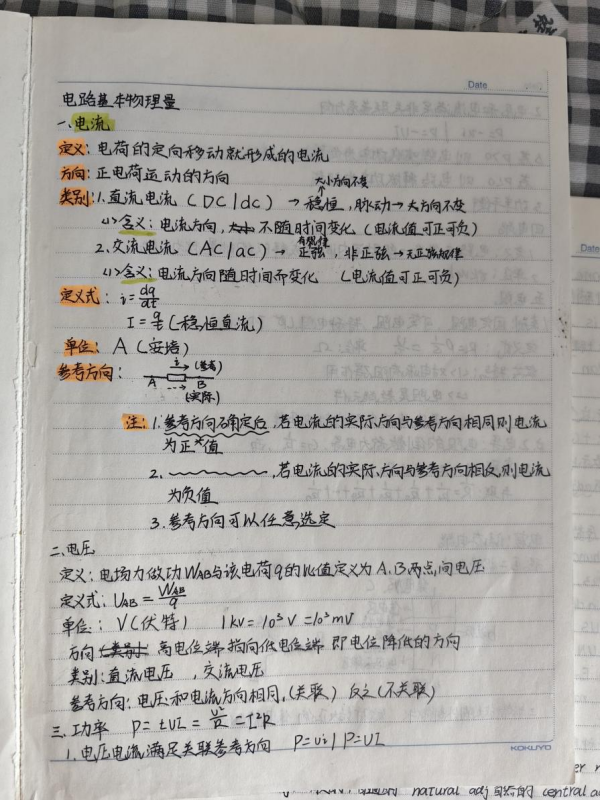 Date
电路基本物理量
一、电流
定义：电荷的定向移动就形成的电流
方向：正电荷运动的方向
大小方向不变
类别：1.直流电流（DC/dc）→稳恒，脉动→大方向不变
(1)含义：电流方向，不随时间变化（电流值可正可负）
有规律
2.交流电流（AC/ac）→正弦，非正弦→无正弦规律
(1)含义：电流方向随时间而变化（电流值可正可负）
定义式：i=dq/dt
I=q/t（稳恒直流）
单位：A（安培）
i →（参考）
参考方向：
A B
（实际）
注：1.参考方向确定后，若电流的实际方向与参考方向相同则电流
为正值
2. ，若电流的实际方向与参考方向相反，则电流
为负值
3.参考方向可以任意选定
二、电压
定义：电场力做功WAB与该电荷q的比值定义为A、B两点间电压
定义式：UAB=WAB/q
单位：V（伏特） 1kv=10³V=10³mV
方向 高电位端指向低电位端 即电位降低的方向
类别：直流电压，交流电压
参考方向：电压和电流方向相同，（关联）反之（不关联）
三、功率 P=±UI=U²/R=I²R
1.电压电流满足关联参考方向 P=ui/P=UI
KOKUYO
Date
natural adj 自然的 central